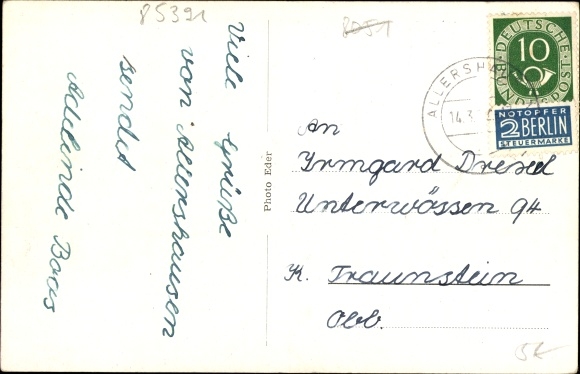 85391
8051
Viele Grüße
von Allershausen
sendet
Adelinde Boos
Photo Eder
DEUTSCHE BUNDESPOST
10
NOTOPFER
2 BERLIN
STEUERMARKE
ALLERSHA
14.3.
An
Irmgard Drexel
Unterwössen 94
K. Traunstein
Obb.